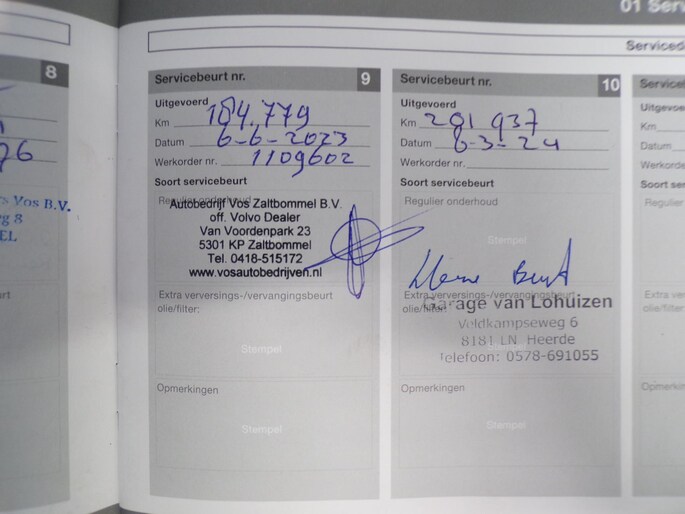 01 Serv
Serviced
8
76
rs Vos B.V.
g 8
EL
Servicebeurt nr. 9
Uitgevoerd
Km 184.779
Datum 6-6-2023
Werkorder nr. 1109602
Soort servicebeurt
Regulier onderhoud
Autobedrijf Vos Zaltbommel B.V.
off. Volvo Dealer
Van Voordenpark 23
5301 KP Zaltbommel
Tel. 0418-515172
www.vosautobedrijven.nl
Extra verversings-/vervangingsbeurt
olie/filter:
Stempel
Opmerkingen
Stempel
Servicebeurt nr. 10
Uitgevoerd
Km 201 937
Datum 6-3-24
Werkorder nr.
Soort servicebeurt
Regulier onderhoud
Stempel
kleine Beurt
Extra verversings-/vervangingsbeurt
olie/filter:
Garage van Lohuizen
Veldkampseweg 6
8181 LN Heerde
Telefoon: 0578-691055
Opmerkingen
Stempel
Servicel
Uitgevoe
Km
Datum
Werkorde
Soort ser
Regulier
Extra ver
olie/filter
Opmerkin